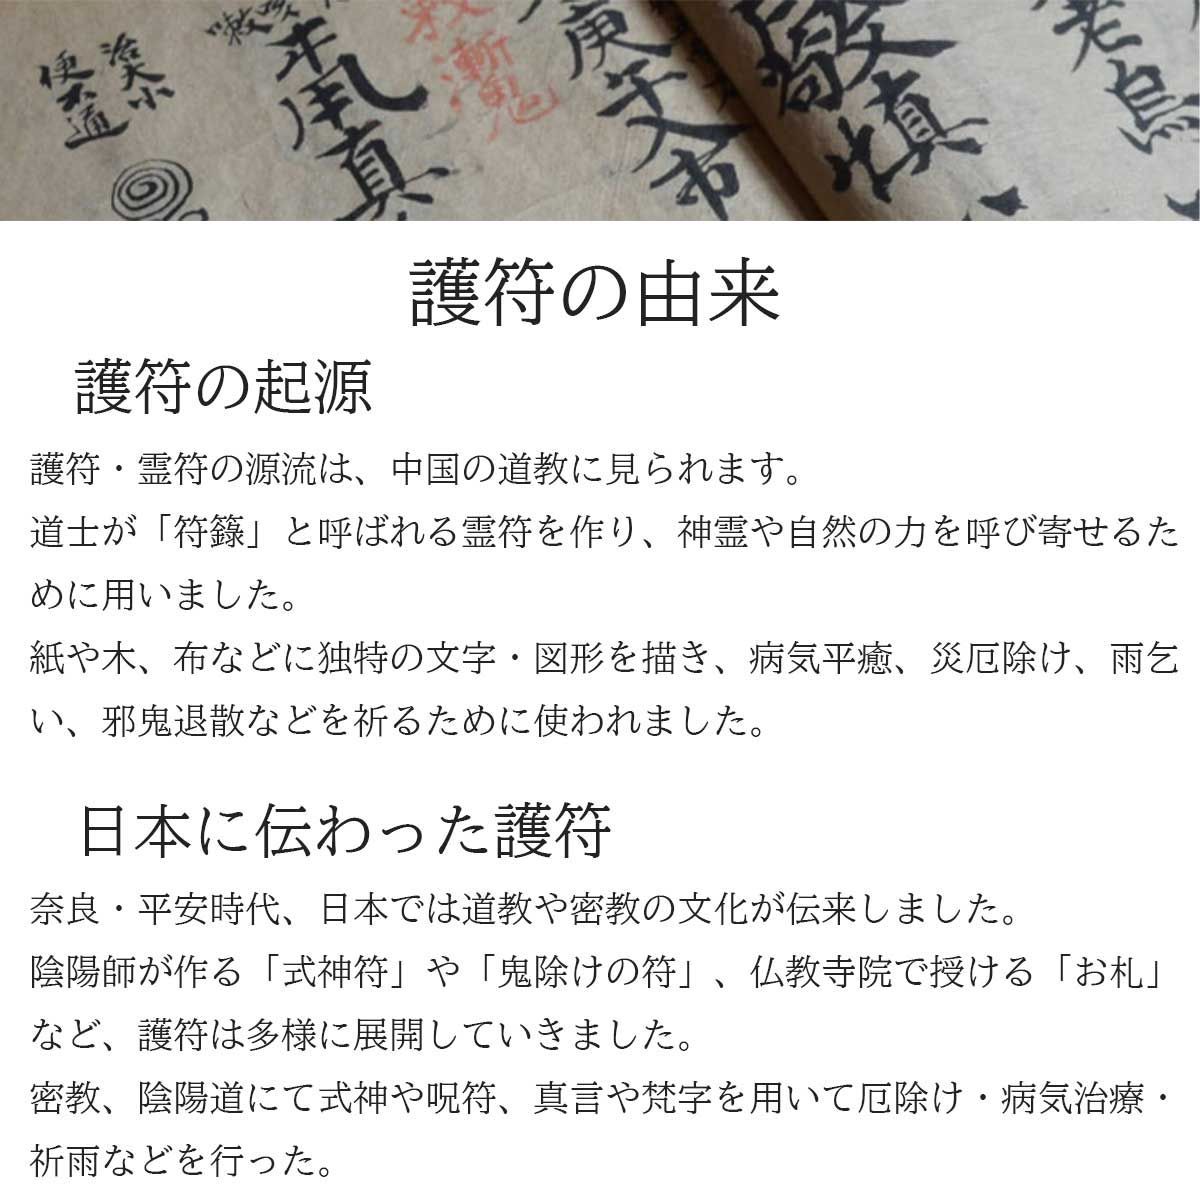 治大小
便不通
真
庚
午
市
真
老
烏
護符の由来
護符の起源
護符・霊符の源流は、中国の道教に見られます。
道士が「符籙」と呼ばれる霊符を作り、神霊や自然の力を呼び寄せるた
めに用いました。
紙や木、布などに独特の文字・図形を描き、病気平癒、災厄除け、雨乞
い、邪鬼退散などを祈るために使われました。
日本に伝わった護符
奈良・平安時代、日本では道教や密教の文化が伝来しました。
陰陽師が作る「式神符」や「鬼除けの符」、仏教寺院で授ける「お札」
など、護符は多様に展開していきました。
密教、陰陽道にて式神や呪符、真言や梵字を用いて厄除け・病気治療・
祈雨などを行った。